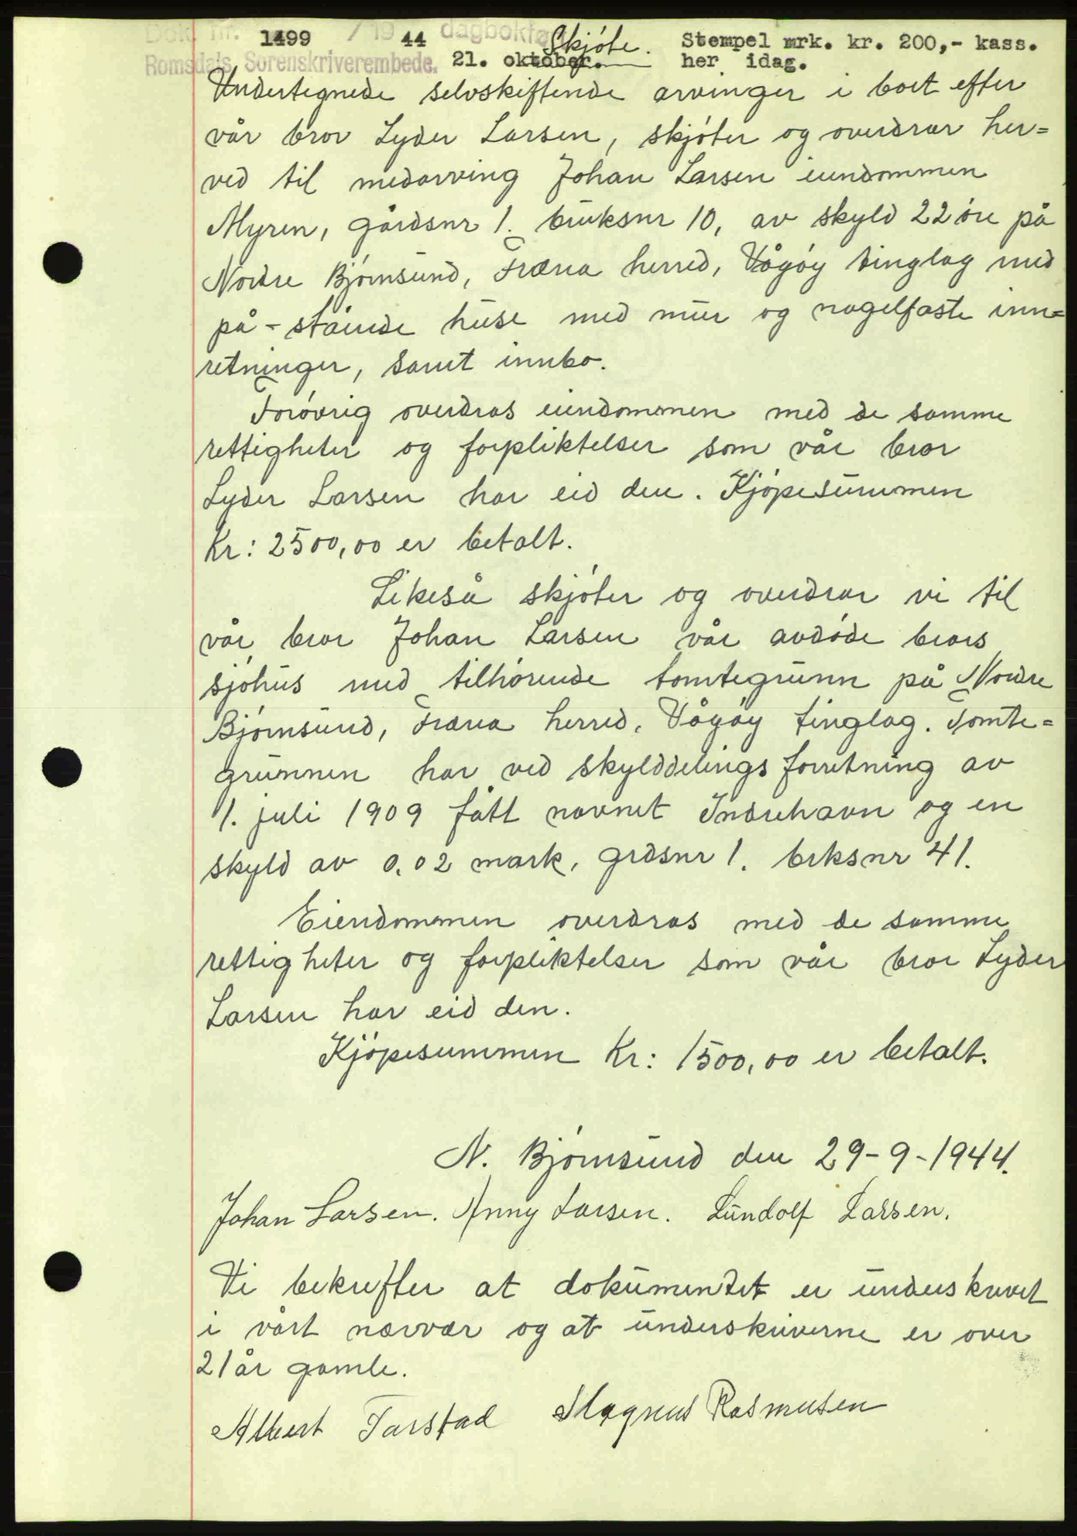 Dok. nr. 1499 / 19 44 dagbokført Skjóte. Stempel mrk. kr. 200,- kass.
Romsdals Sorenskriverembede. 21. oktober. her idag.
Undertegnede selvskiftende arvinger i boet efter
vår bror Lyder Larsen, skjóter og overdrar her=
ved til medarving Johan Larsen eiendommen
Myren, gårdsnr 1. bruksnr 10, av skyld 22 óre på
Nordre Bjórnsund, Fræna herred, Vågóy tinglag med
på-stående huse med mur og nagelfaste inn=
retninger, samt innbo.
Foróvrig overdras eiendommen med de samme
rettigheter og forpliktelser som vår bror
Lyder Larsen har eid den. Kjópesummen
Kr: 2500,00 er betalt.
Likeså skjóter og overdrar vi til
vår bror Johan Larsen vår avdóde brors
sjóhus med tilhórende tomtegrunn på Nordre
Bjórnsund, Fræna herred, Vågóy tinglag. Tomte=
grunnen har ved skylddelingsforretning av
1. juli 1909 fått navnet Indrehavn og en
skyld av 0,02 mark, grdsnr 1. brksnr 41.
Eiendommen overdras med de samme
rettigheter og forpliktelser som vår bror Lyder
Larsen har eid den.
Kjópesummen Kr: 1500,00 er betalt.
N. Bjórnsund den 29-9-1944.
Johan Larsen. Anny Larsen. Lundolf Larsen.
Vi bekrefter at dokumentet er underskrevet
i vårt nærvær og at underskriverne er over
21 år gamle.
Albert Tarstad Magnus Rasmusen